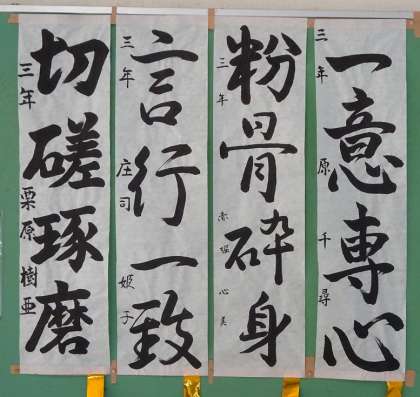 一意専心
三年 原千尋
粉骨砕身
三年 赤堀心美
言行一致
三年 庄司姫子
切磋琢磨
三年 栗原樹亜